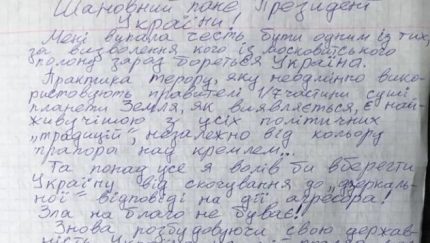 Шановний пане Президент
України!
Мені випала честь бути одним із тих,
за визволення кого із московитського
полону зараз бореться Україна.
Практика терору, яку неодмінно вико-
ристовують правителі 1/7 частини суші
планети Земля, як виявляється, є най-
живучішою з усіх політичних
„традицій", незалежно від кольору
прапора над кремлем...
Та понад усе я волів би вберегти
Україну від скочування до „дзеркаль-
ної" відповіді на дії агресора!
Зла на благо не буває!
Знову розбудовуючи свою держав-
ність